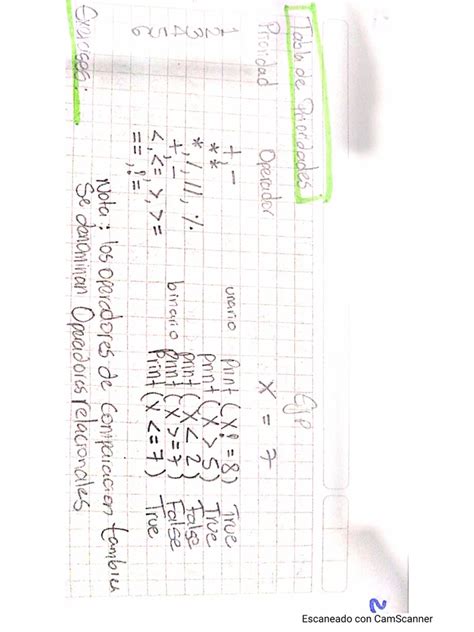 Tabla de Prioridades:
Ejp.
Prioridad Operador X = 7
1 +, - unario print (X != 8) True
2 ** print (X > 5) True
3 *, /, //, % print (X < 2) False
4 +, - binario print (X >= 7) False
5 <, <=, >, >= print (X <= 7) True
6 ==, !=
Nota: los operadores de comparacion tambien
Se denominan Operadores relacionales
Exercises:
2
Escaneado con CamScanner